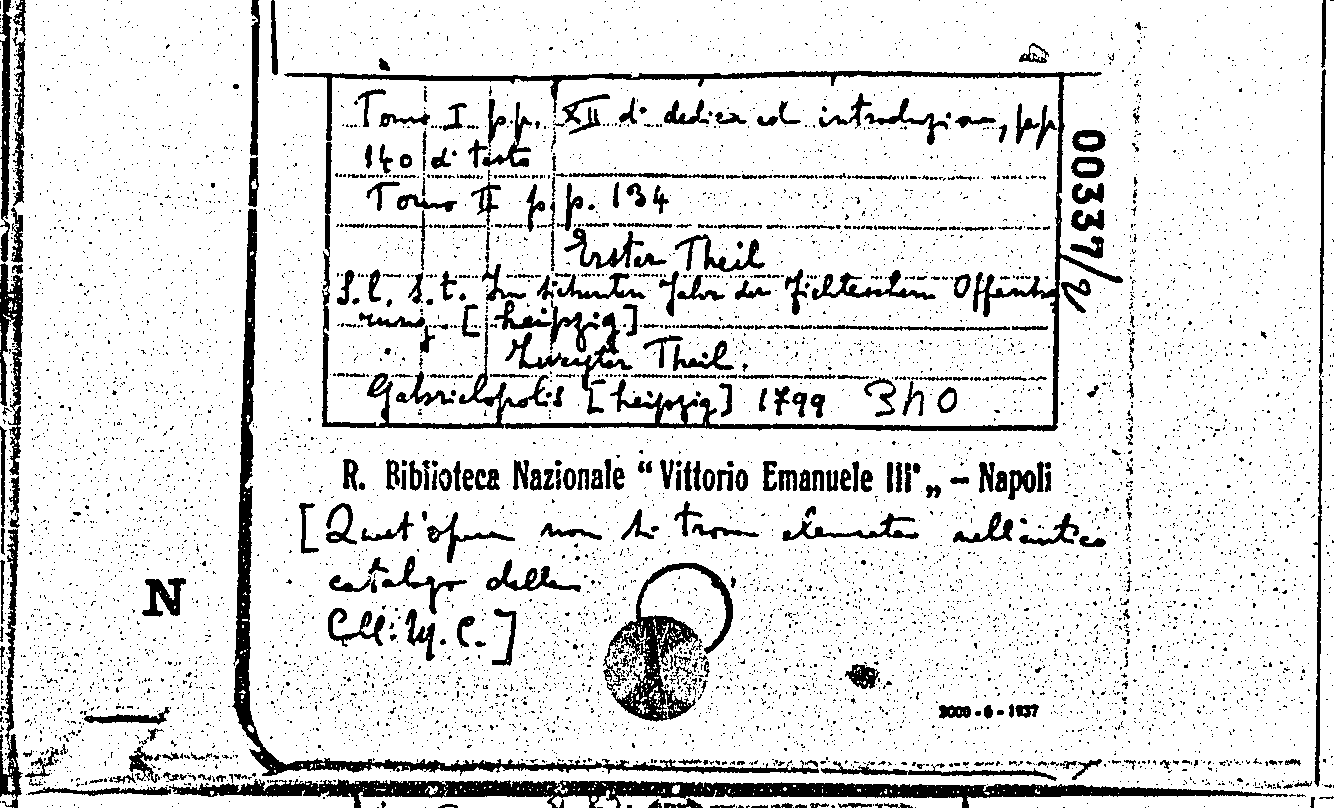 Tomo I pp. XII di dedica ed introduzione, pp.
140 di testo
Tomo II pp. 134
Erster Theil
S.l. s.t. Im siebenten Jahr der Fichteschen Offenba
rung. [Leipzig]
Zweyter Theil.
Gabrielopolis [Leipzig] 1799 340
00337/2
R. Biblioteca Nazionale “Vittorio Emanuele III„ – Napoli
[Quest'opera non si trova elencata nell'antico
catalogo della
Coll: M. C.]
N
2000-6-1937